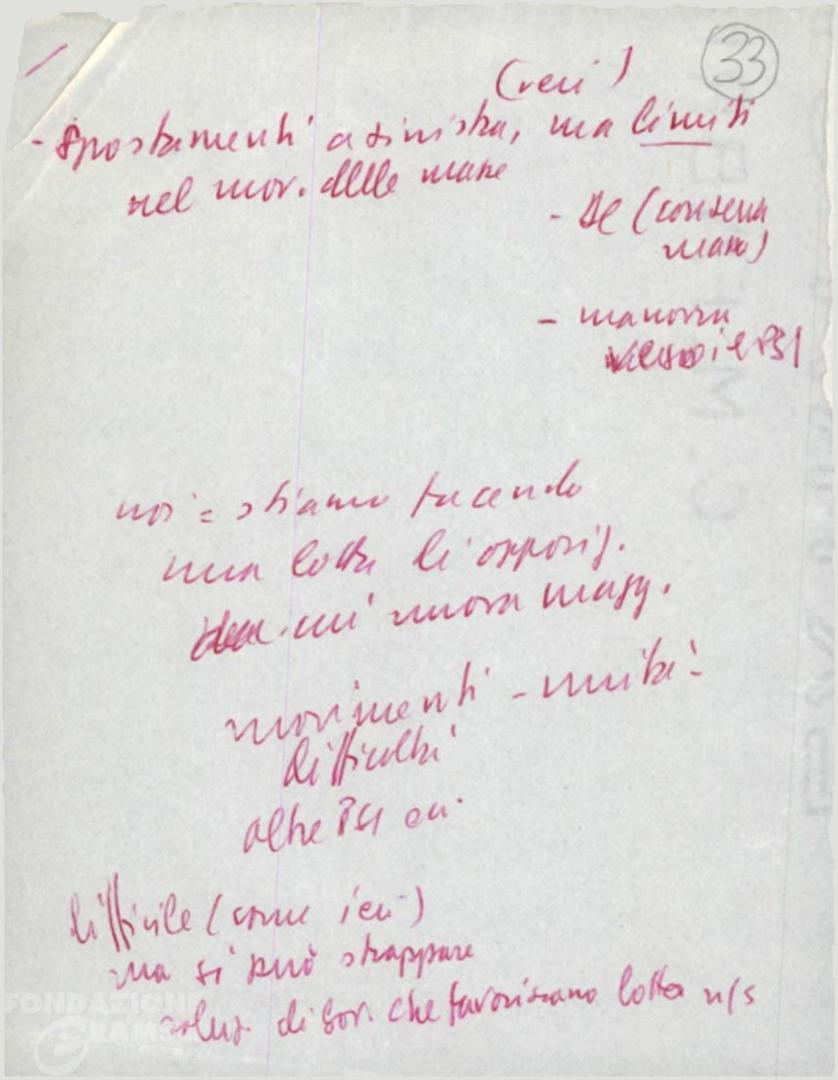 33
(veri)
- Spostamenti a sinistra, ma limiti
nel mov. delle masse
- DC (conserva
masse)
- manovra
verso il PSI
noi = stiamo facendo
una lotta di opposiz.
nuova magg.
movimenti - unità
difficoltà
oltre PSI
difficile (come ieri)
ma si può strappare
soluz. di gov. che favoriscano lotta n/s
FONDAZIONE
GRAMSCI